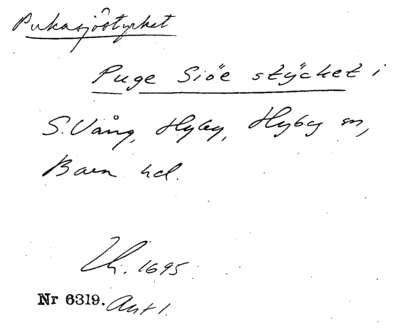 Pukasjöstycket
Puge Siöe stÿcket i
S. Vång, Hyby, Hyby sn,
Bara hd.
Lh. 1695
Nr 6319. Ant 1.